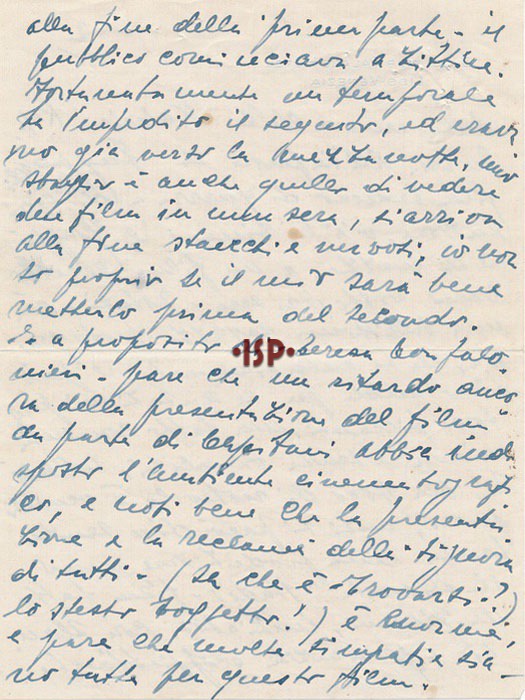 alla fine della prima parte - il
pubblico cominciava a zittire.
Fortunatamente un temporale
ha impedito il seguito, ed erava
mo già verso la mezzanotte, uno
sbaglio è anche quello di vedere
due film in una sera, si arriva
alla fine stanchi e nervosi, io non
so proprio se il mio sarà bene
metterlo prima del secondo.
E a proposito ISP Teresa Confalo
nieri - pare che un ritardo anco
ra della presentazione del film
da parte di Capitani abbia indi
sposto l'ambiente cinematografi
co, e noti bene che la presenta
zione e la reclame della Signora
di tutti - (sa che è Trovarsi?)
lo stesso soggetto!) è enorme,
e pare che molte simpatie sia
no tutte per questo film.